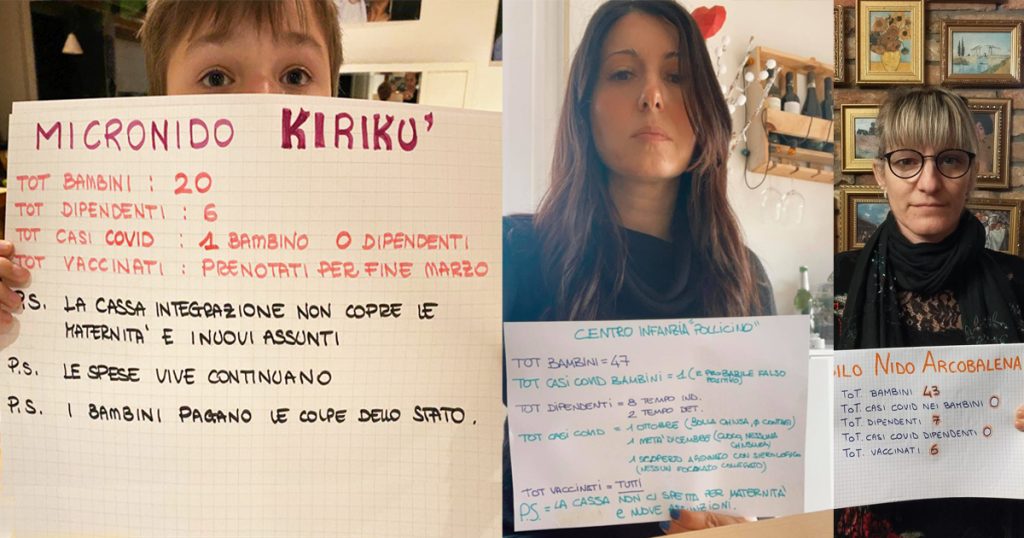 MICRONIDO KIRIKU'
TOT BAMBINI : 20
TOT DIPENDENTI : 6
TOT CASI COVID : 1 BAMBINO 0 DIPENDENTI
TOT VACCINATI : PRENOTATI PER FINE MARZO
P.S. LA CASSA INTEGRAZIONE NON COPRE LE
MATERNITA' E I NUOVI ASSUNTI
P.S. LE SPESE VIVE CONTINUANO
P.S. I BAMBINI PAGANO LE COLPE DELLO STATO.
CENTRO INFANZIA "POLLICINO"
TOT BAMBINI = 47
TOT CASI COVID BAMBINI = 1 (E PROBABILE FALSO
POSITIVO)
TOT DIPENDENTI = 8 TEMPO IND.
2 TEMPO DET.
TOT CASI COVID = 1 OTTOBRE (BOLLA CHIUSA, 0 CONTAGI)
1 METÀ DICEMBRE (NESSUNA
CHIUSURA)
1 SCOPERTO A GENNAIO CON SIEROLOGICO
(NESSUN FOCOLAIO COLLEGATO)
TOT VACCINATI = TUTTI
P.S. = LA CASSA NON CI SPETTA PER MATERNITA'
E NUOVE ASSUNZIONI.
SILO NIDO ARCOBALENA
TOT. BAMBINI 43
TOT. CASI COVID NEI BAMBINI 0
TOT. DIPENDENTI 7
TOT. CASI COVID DIPENDENTI 0
TOT. VACCINATI 6